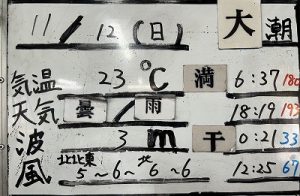 11/12(日) 大潮
気温 23℃ 満 6:37 180
天気 曇/雨 18:19 193
波 3m 干 0:21 33
風 北北東 5~6~ 北 6~6 12:25 67